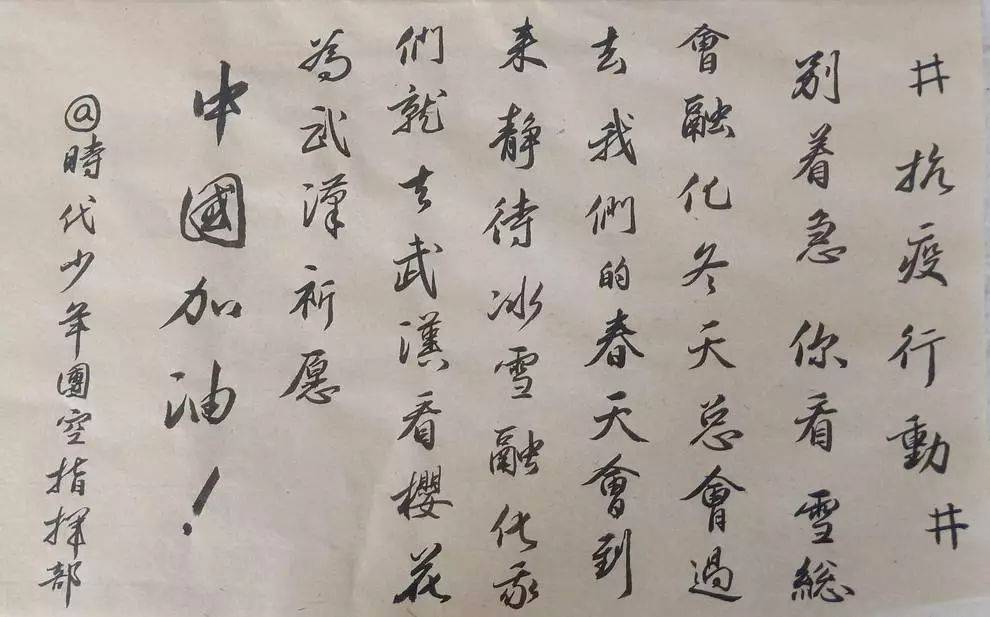 #抗疫行動#
别着急 你看 雪総
會融化冬天总會過
去我們的春天會到
来静待冰雪融化我
們就去武漢看櫻花
為武漢祈愿
中國加油!
@時代少年團空指揮部